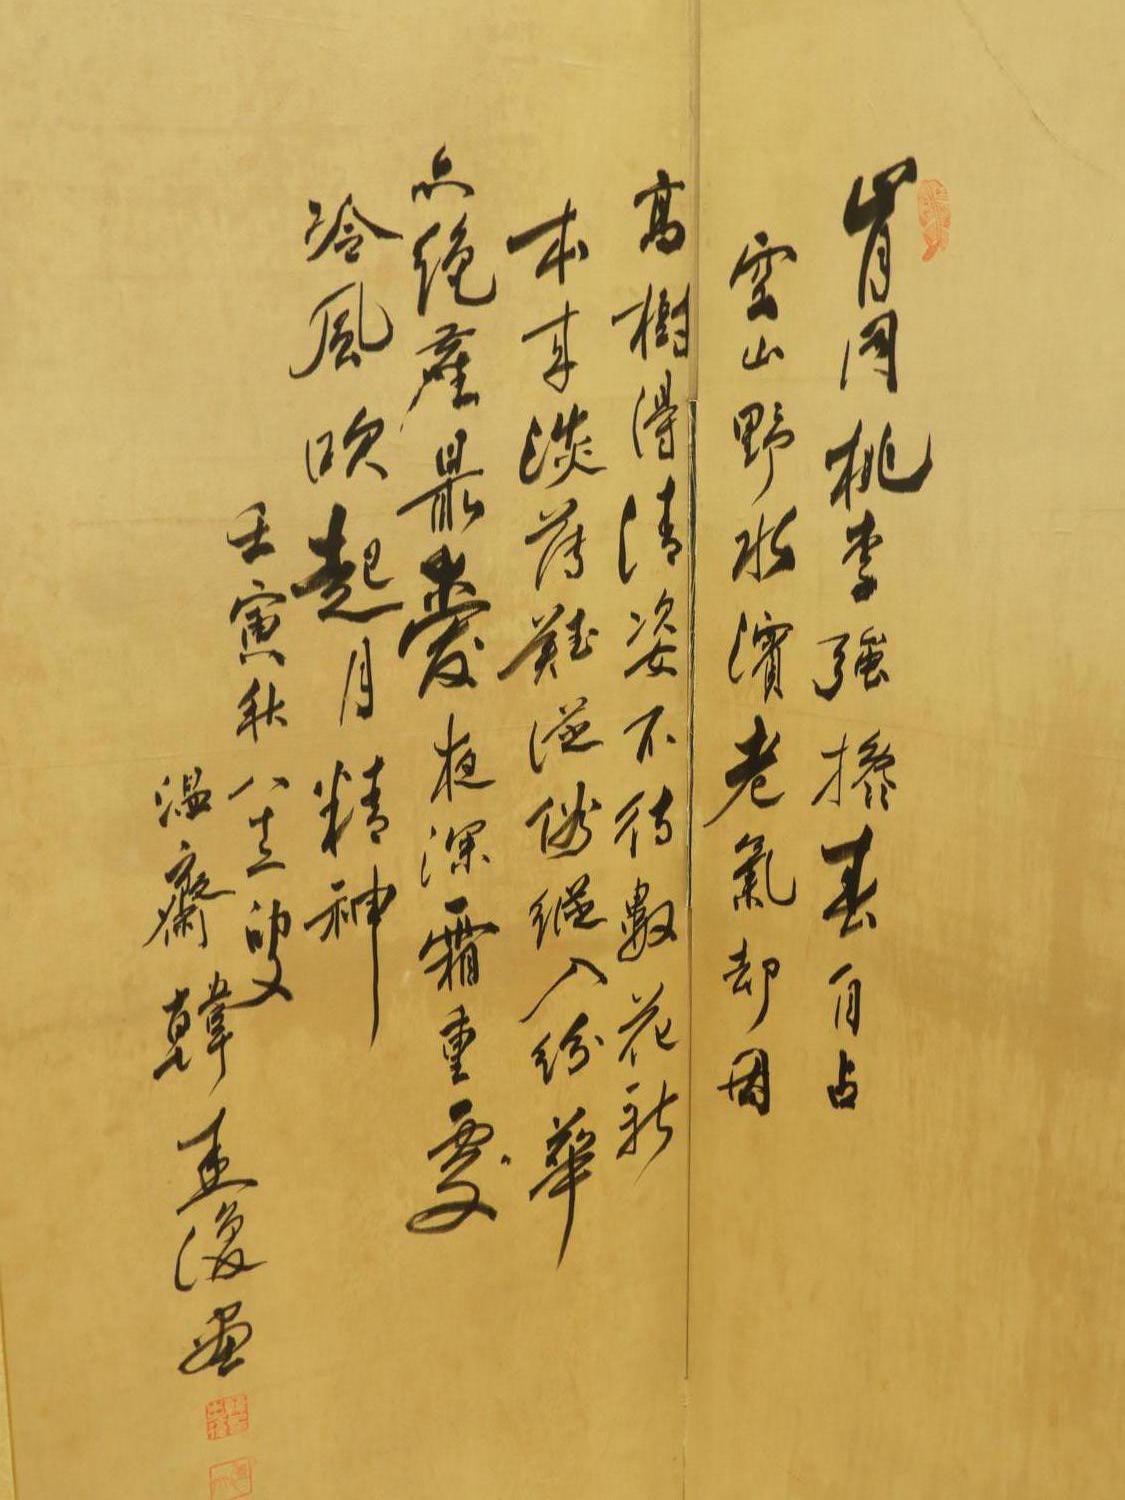 肯同桃李強攙春自占
空山野水濱老氣却因
高樹得清姿不待數花新
本來淡薄難從俗縱入紛華
亦絕塵最愛夜深霜重處
冷風吹起月精神
壬寅秋八十三叟
温齋韓復畫